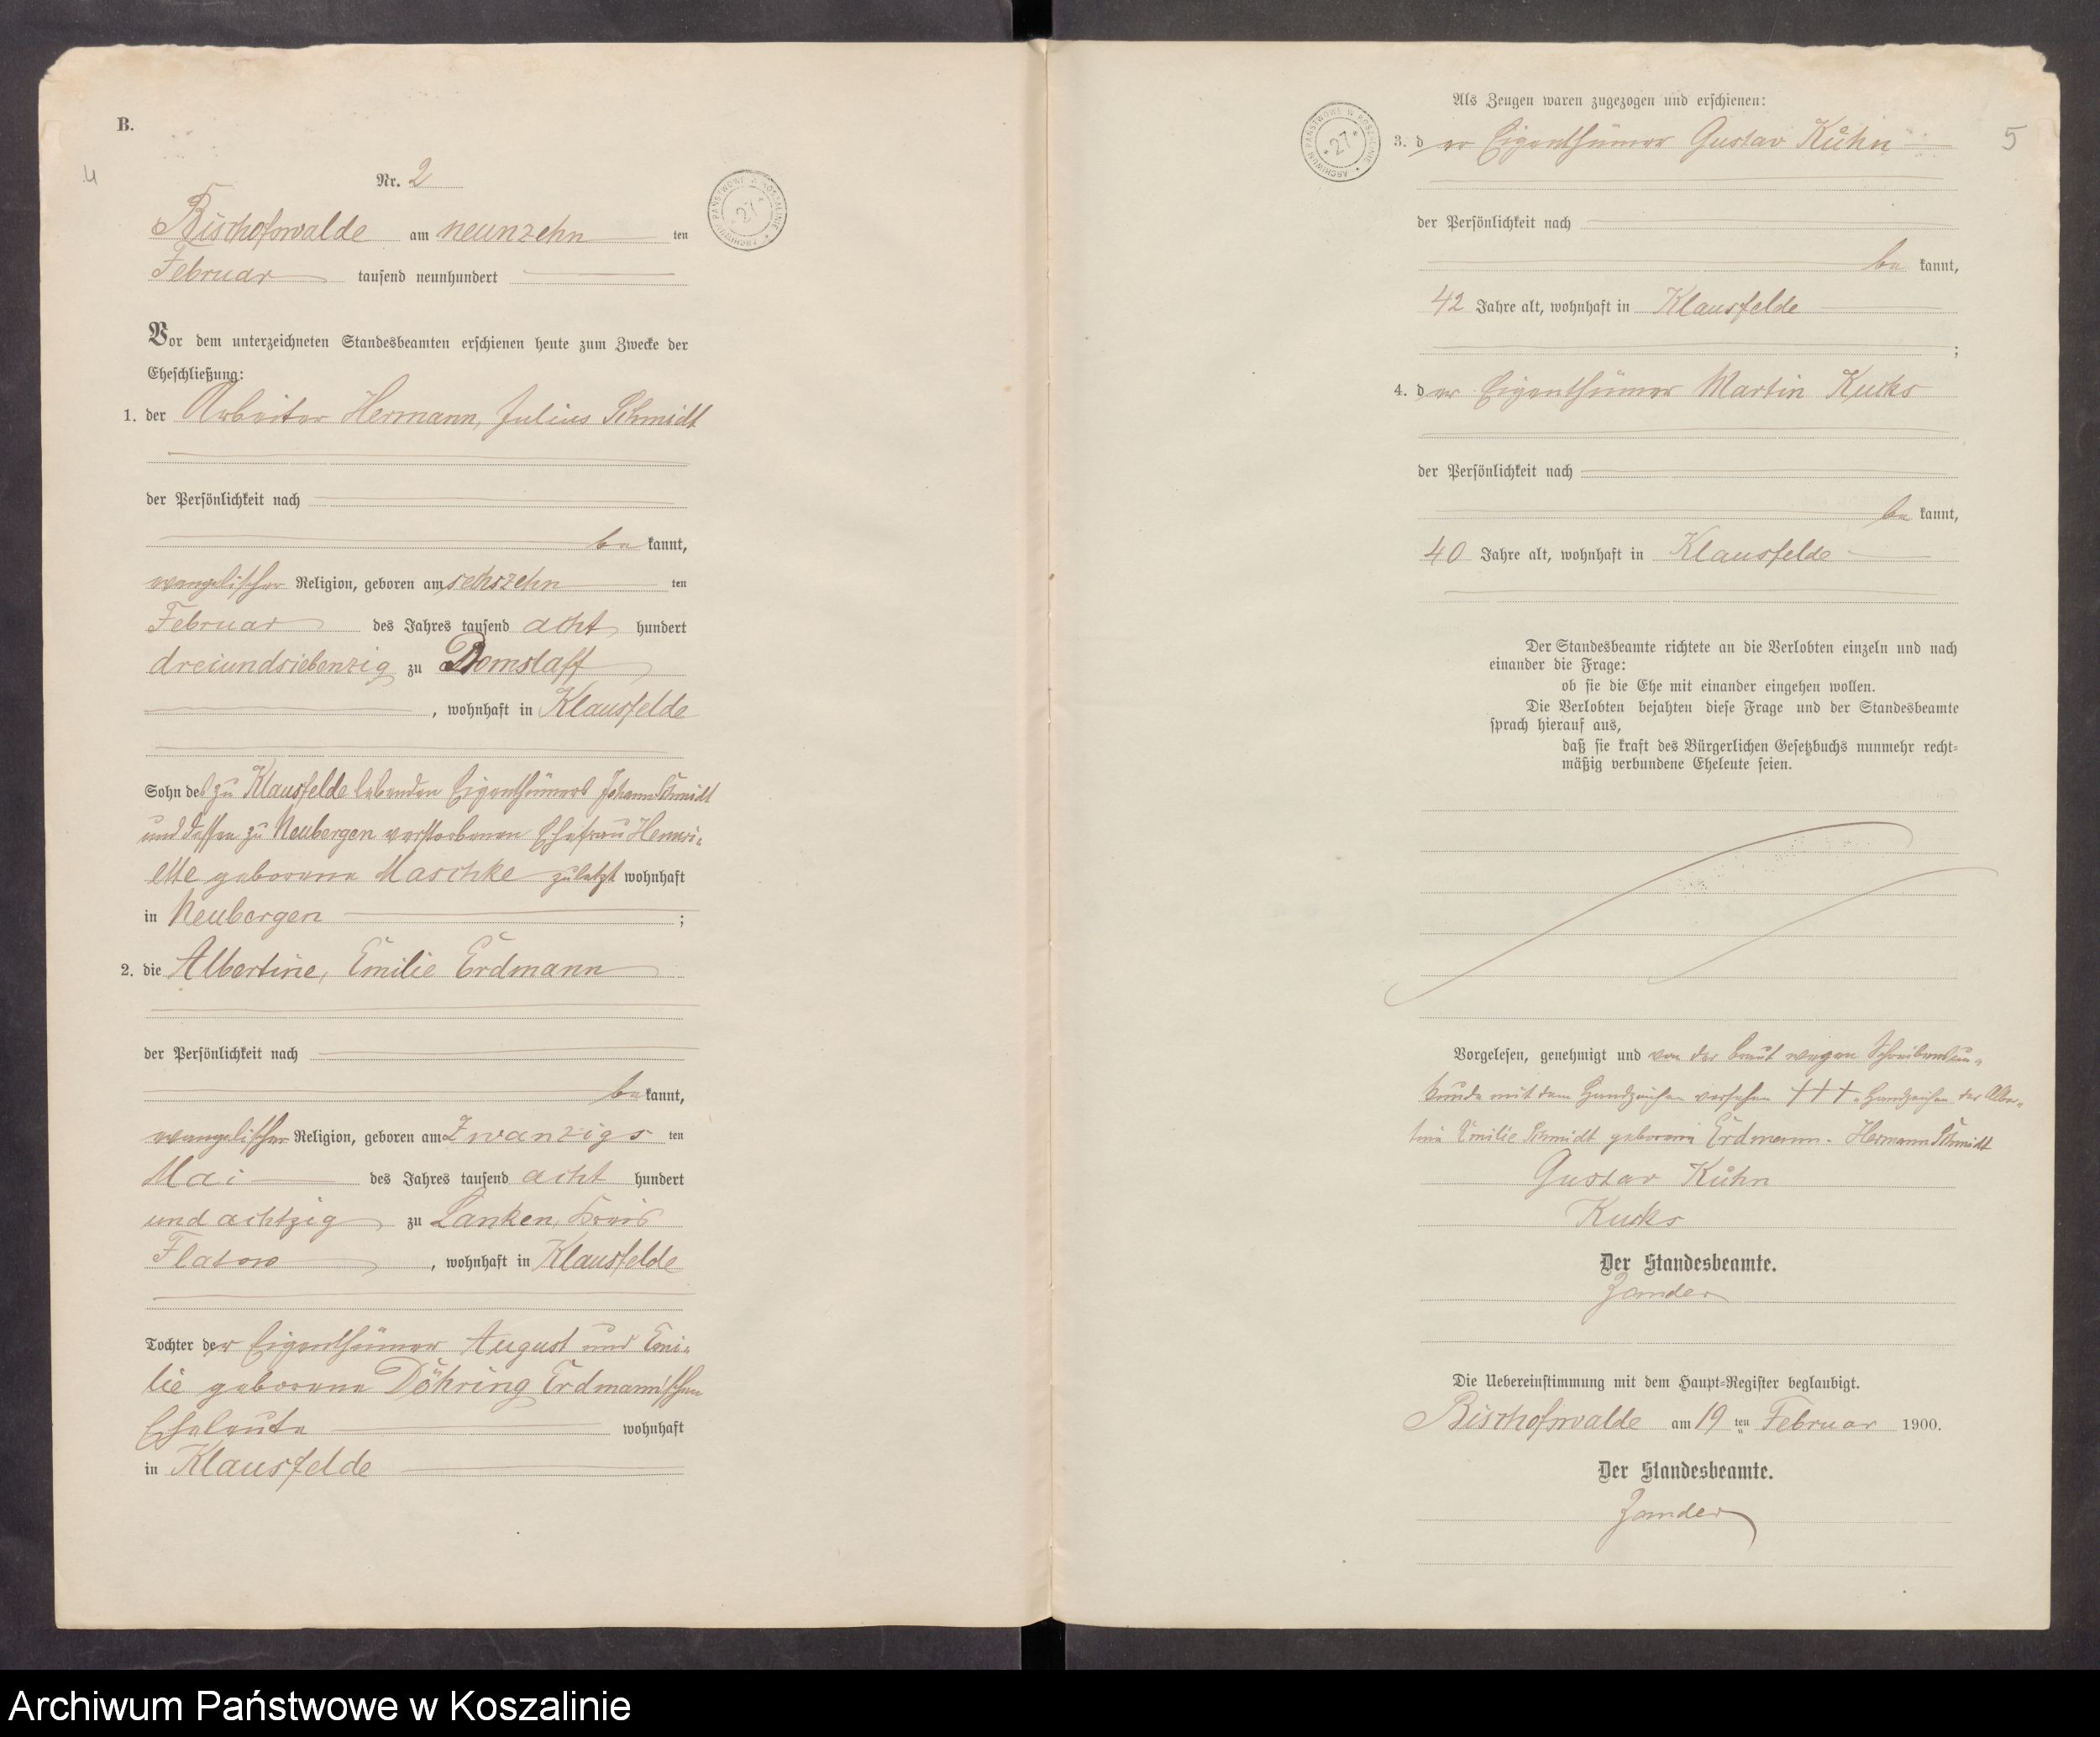 B.
4
Nr. 2
Bischofswalde am neunzehn ten
Februar tausend neunhundert
ARCHIWUM PAŃSTWOWE W KOSZALINIE * 27 *
Vor dem unterzeichneten Standesbeamten erschienen heute zum Zwecke der
Eheschließung:
1. der Arbeiter Hermann, Julius Schmidt
der Persönlichkeit nach
be kannt,
evangelischer Religion, geboren am sechszehn ten
Februar des Jahres tausend acht hundert
dreiundsiebenzig zu Domslaff
, wohnhaft in Klausfelde
Sohn des zu Klausfelde lebenden Eigenthümers Johann Schmidt
und dessen zu Neubergen verstorbenen Ehefrau Henri-
ette geborene Maschke zuletzt wohnhaft
in Neubergen ;
2. die Albertine, Emilie Erdmann
der Persönlichkeit nach
be kannt,
evangelischer Religion, geboren am Zwanzigs ten
Mai des Jahres tausend acht hundert
und achtzig zu Lanken, Kreis
Flatow , wohnhaft in Klausfelde
Tochter der Eigenthümer August und Emi-
lie geborene Döhring Erdmann'schen
Eheleute wohnhaft
in Klausfelde
5
ARCHIWUM PAŃSTWOWE W KOSZALINIE * 27 *
Als Zeugen waren zugezogen und erschienen:
3. der Eigenthümer Gustav Kühn
der Persönlichkeit nach
be kannt,
42 Jahre alt, wohnhaft in Klausfelde
;
4. der Eigenthümer Martin Kucks
der Persönlichkeit nach
be kannt,
40 Jahre alt, wohnhaft in Klausfelde
Der Standesbeamte richtete an die Verlobten einzeln und nach
einander die Frage:
ob sie die Ehe mit einander eingehen wollen.
Die Verlobten bejahten diese Frage und der Standesbeamte
sprach hierauf aus,
daß sie kraft des Bürgerlichen Gesetzbuchs nunmehr recht-
mäßig verbundene Eheleute seien.
Vorgelesen, genehmigt und von der Braut wegen Schreibensun-
kunde mit dem Handzeichen versehen +++ Handzeichen der Alber-
tine Emilie Schmidt geborene Erdmann. Hermann Schmidt
Gustav Kühn
Kucks
Der Standesbeamte.
Zander
Die Uebereinstimmung mit dem Haupt-Register beglaubigt.
Bischofswalde am 19 ten Februar 1900.
Der Standesbeamte.
Zander
Archiwum Państwowe w Koszalinie